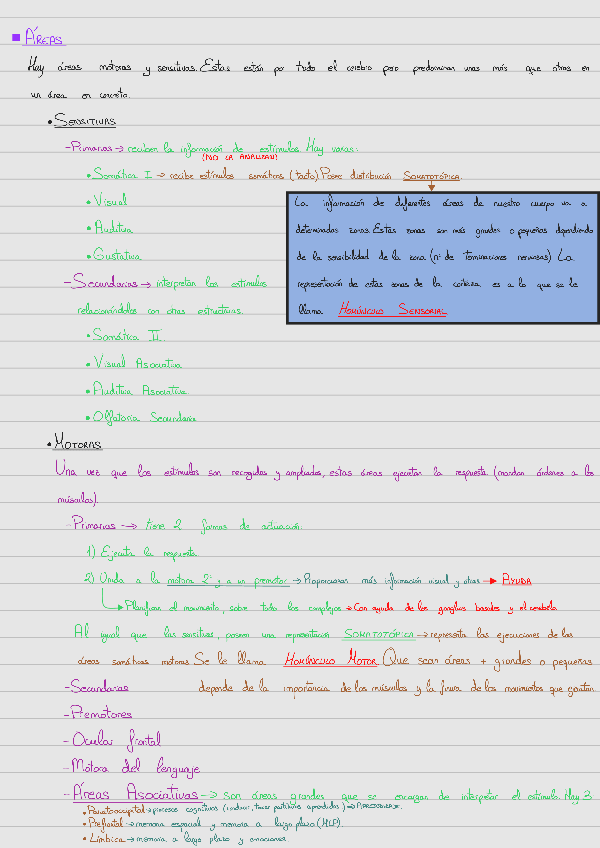 ÁREAS
Hay áreas motoras y sensitivas. Estas están por todo el cerebro pero predominan unas más que otras en
un área en concreto.
• SENSITIVAS
- Primarias → reciben la información de estímulos. Hay varias:
(NO LA ANALIZAN)
• Somática I → recibe estímulos somáticos (tacto). Posee distribución SOMATOTÓPICA.
• Visual
• Auditiva
• Gustativa
La información de diferentes áreas de nuestro cuerpo va a
determinadas zonas. Estas zonas son más grandes o pequeñas dependiendo
de la sensibilidad de la zona (nº de terminaciones nerviosas). La
representación de estas zonas de la corteza es a lo que se le
llama HOMÚNCULO SENSORIAL
- Secundarias → interpretan los estímulos
relacionándolos con otras estructuras.
• Somática II
• Visual Asociativa
• Auditiva Asociativa
• Olfatoria Secundaria
• MOTORAS
Una vez que los estímulos son recogidos y ampliados, estas áreas ejecutan la respuesta (mandan órdenes a los
músculos).
- Primarias → tiene 2 formas de actuación:
1) Ejecuta la respuesta
2) Unida a la motora 2ª y a un premotor → Proporcionas más información visual y otras → AYUDA
→ Planifican el movimiento, sobre todo los complejos → Con ayuda de los ganglios basales y el cerebelo
Al igual que las sensitivas, poseen una representación SOMATOTÓPICA → representa las ejecuciones de las
áreas somáticas motoras. Se le llama HOMÚNCULO MOTOR. Que sean áreas + grandes o pequeñas
- Secundarias depende de la importancia de los músculos y la finura de los movimientos que ejecutan
- Premotores
- Ocular frontal
- Motora del lenguaje
- Áreas Asociativas → Son áreas grandes que se encargan de interpretar el estímulo. Hay 3
• Parietooccipital → procesos cognitivos (conducir, tocar partituras aprendidas) → APRENDIZAJE.
• Prefrontal → memoria espacial y memoria a largo plazo (MLP).
• Límbica → memoria a largo plazo y emociones.